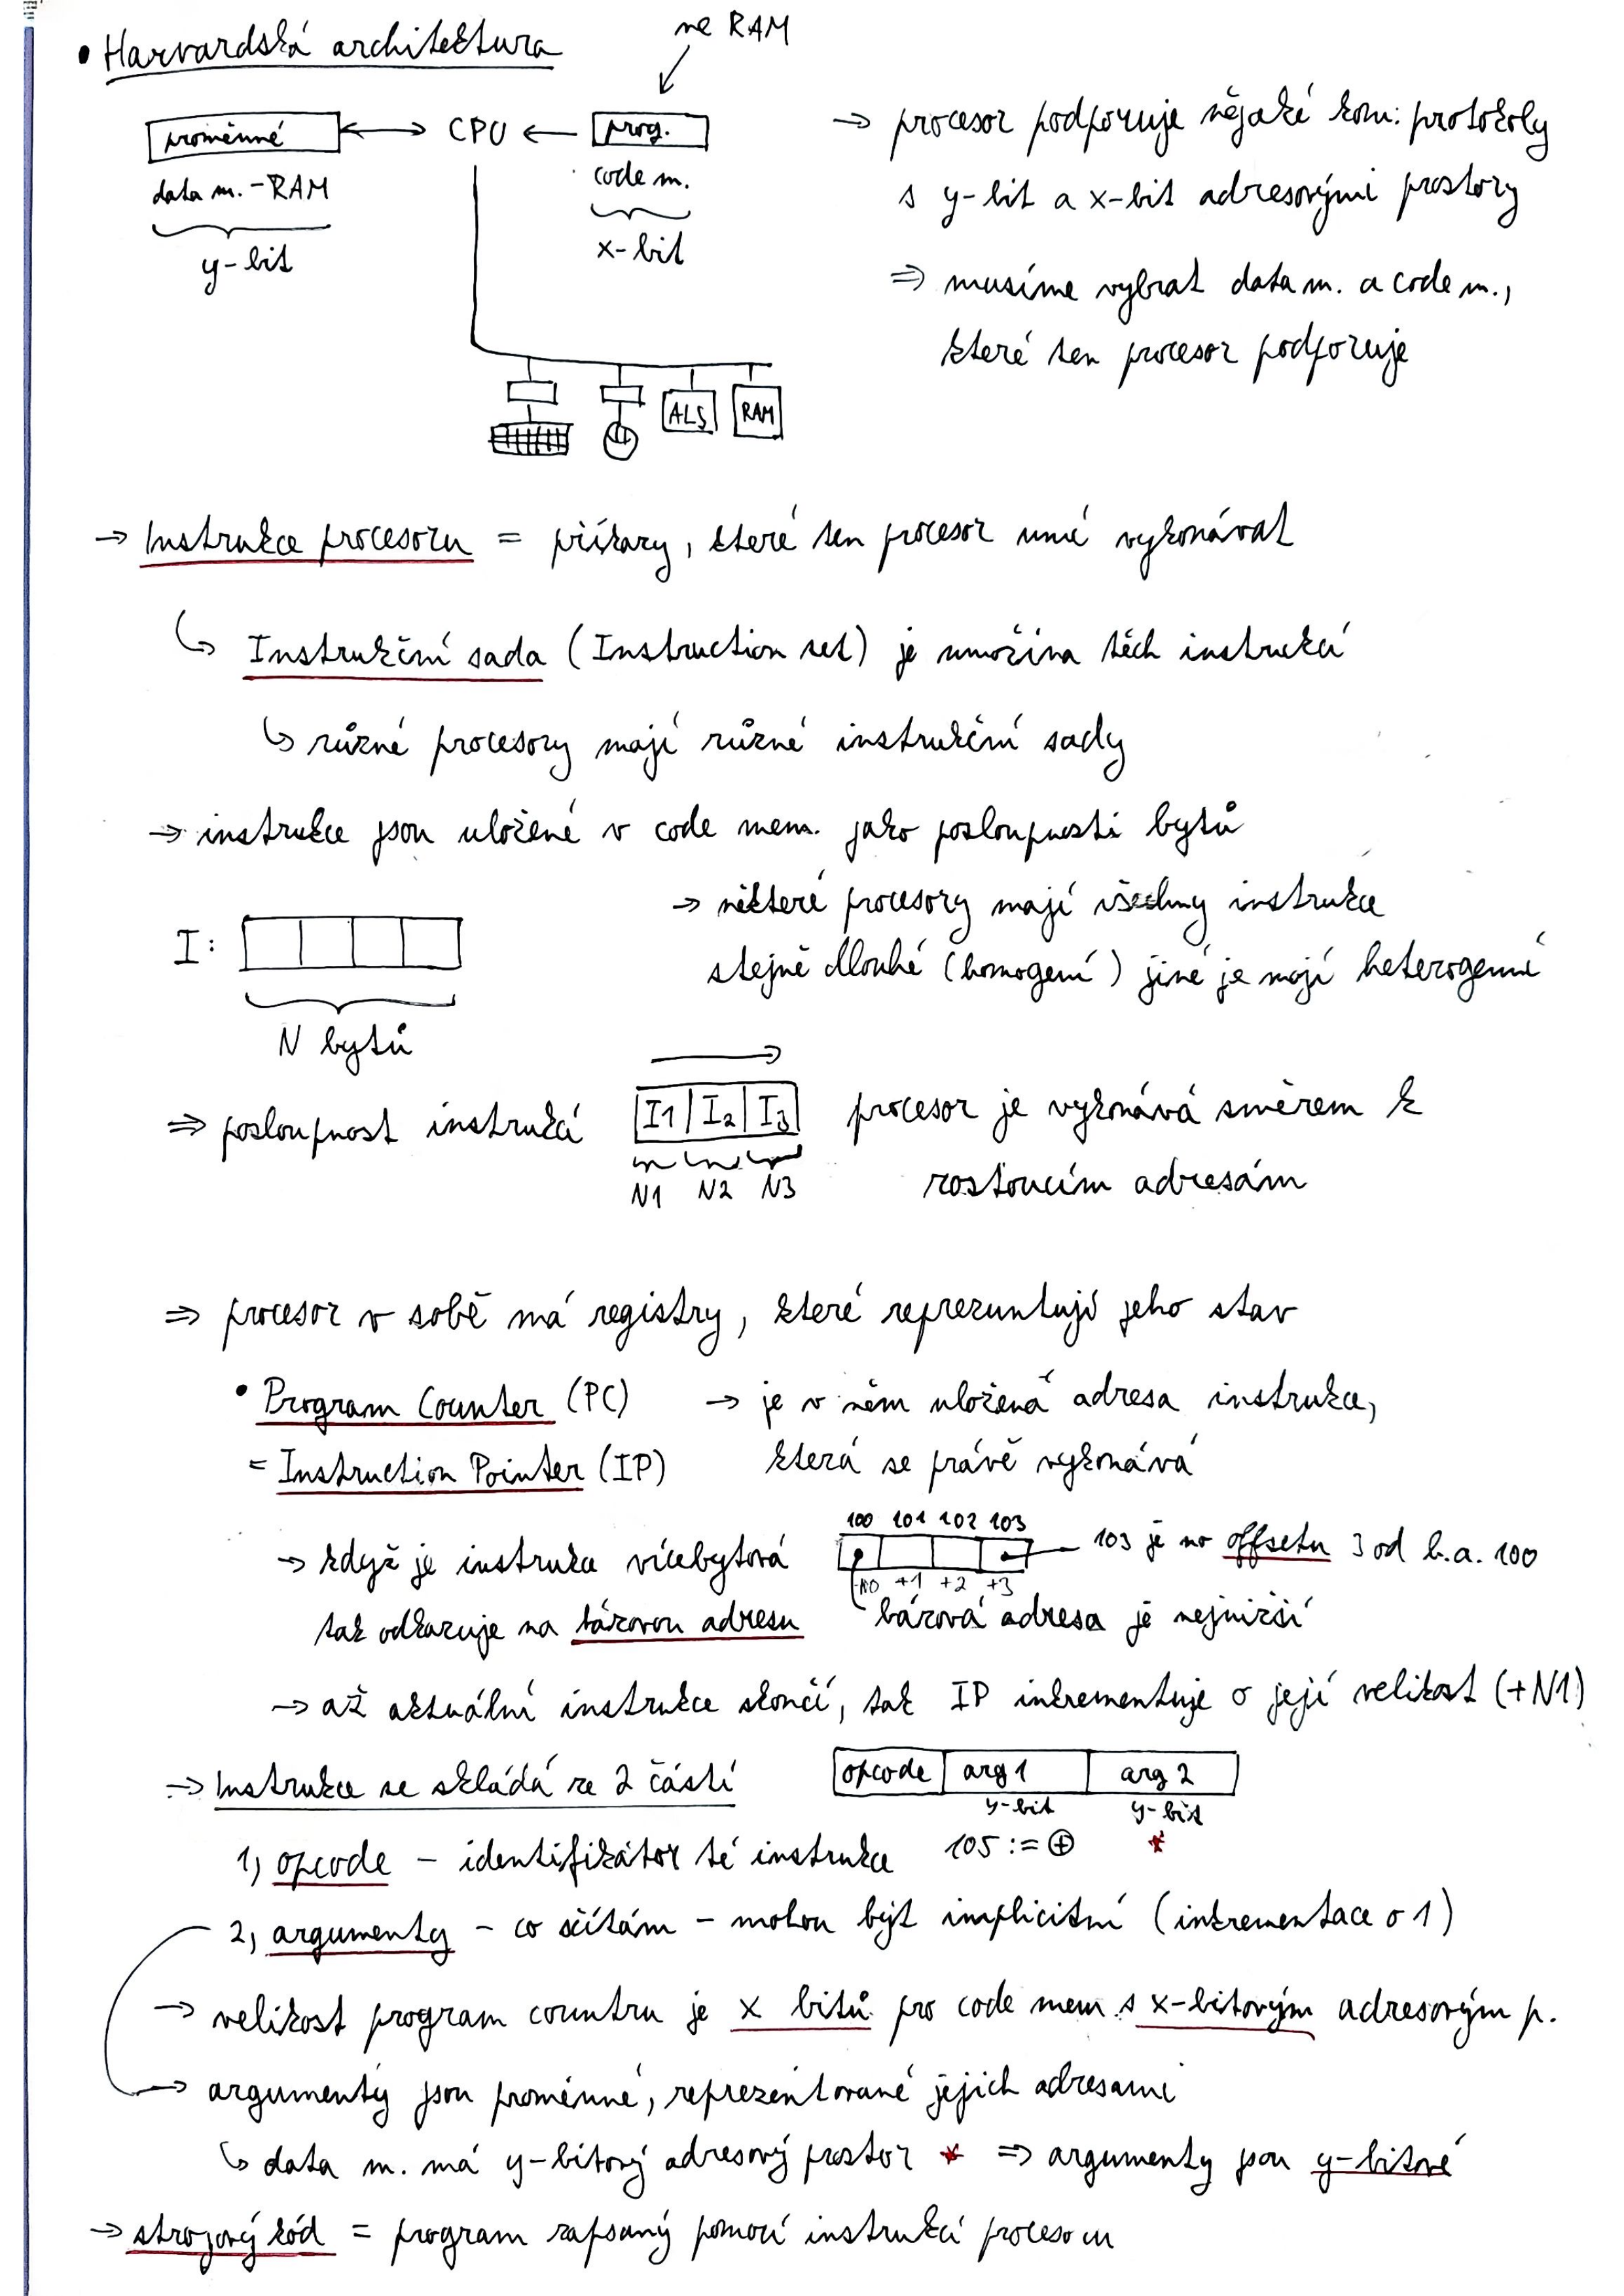 • Harvardská architektura
ne RAM
proměnné
CPU
prog.
data m. - RAM
code m.
y-bit
x-bit
→ procesor podporuje nějaké kom. protokoly
s y-bit a x-bit adresovými prostory
⇒ musíme vybrat data m. a code m.,
které ten procesor podporuje
ALS
RAM
→ Instrukce procesoru = příkazy, které ten procesor umí vykonávat
↳ Instrukční sada (Instruction set) je množina těch instrukcí
↳ různé procesory mají různé instrukční sady
→ instrukce jsou uložené v code mem. jako posloupnosti bytů
→ některé procesory mají všechny instrukce
stejně dlouhé (homogení) jiné je mají heterogenní
I:
N bytů
⇒ posloupnost instrukcí
I1 | I2 | I3
procesor je vykonává směrem k
N1 N2 N3
rostoucím adresám
⇒ procesor v sobě má registry, které reprezentují jeho stav
• Program Counter (PC) → je v něm uložená adresa instrukce,
= Instruction Pointer (IP) která se právě vykonává
100 101 102 103
→ když je instrukce vícebytová
103 je na offsetu 3 od b.a. 100
+0 +1 +2 +3
tak odkazuje na bázovou adresu
bázová adresa je nejnižší
→ až aktuální instrukce skončí, tak IP inkrementuje o její velikost (+N1)
→ Instrukce se skládá ze 2 částí
opcode | arg 1 | arg 2
y-bit y-bit
1) opcode - identifikátor té instrukce 105 := ⊕ *
2) argumenty - co sčítám - mohou být implicitní (inkrementace o 1)
→ velikost program countru je x bitů pro code mem. s x-bitovým adresovým p.
→ argumenty jsou proměnné, reprezentované jejich adresami
↳ data m. má y-bitový adresový prostor * ⇒ argumenty jsou y-bitové
→ strojový kód = program zapsaný pomocí instrukcí procesoru